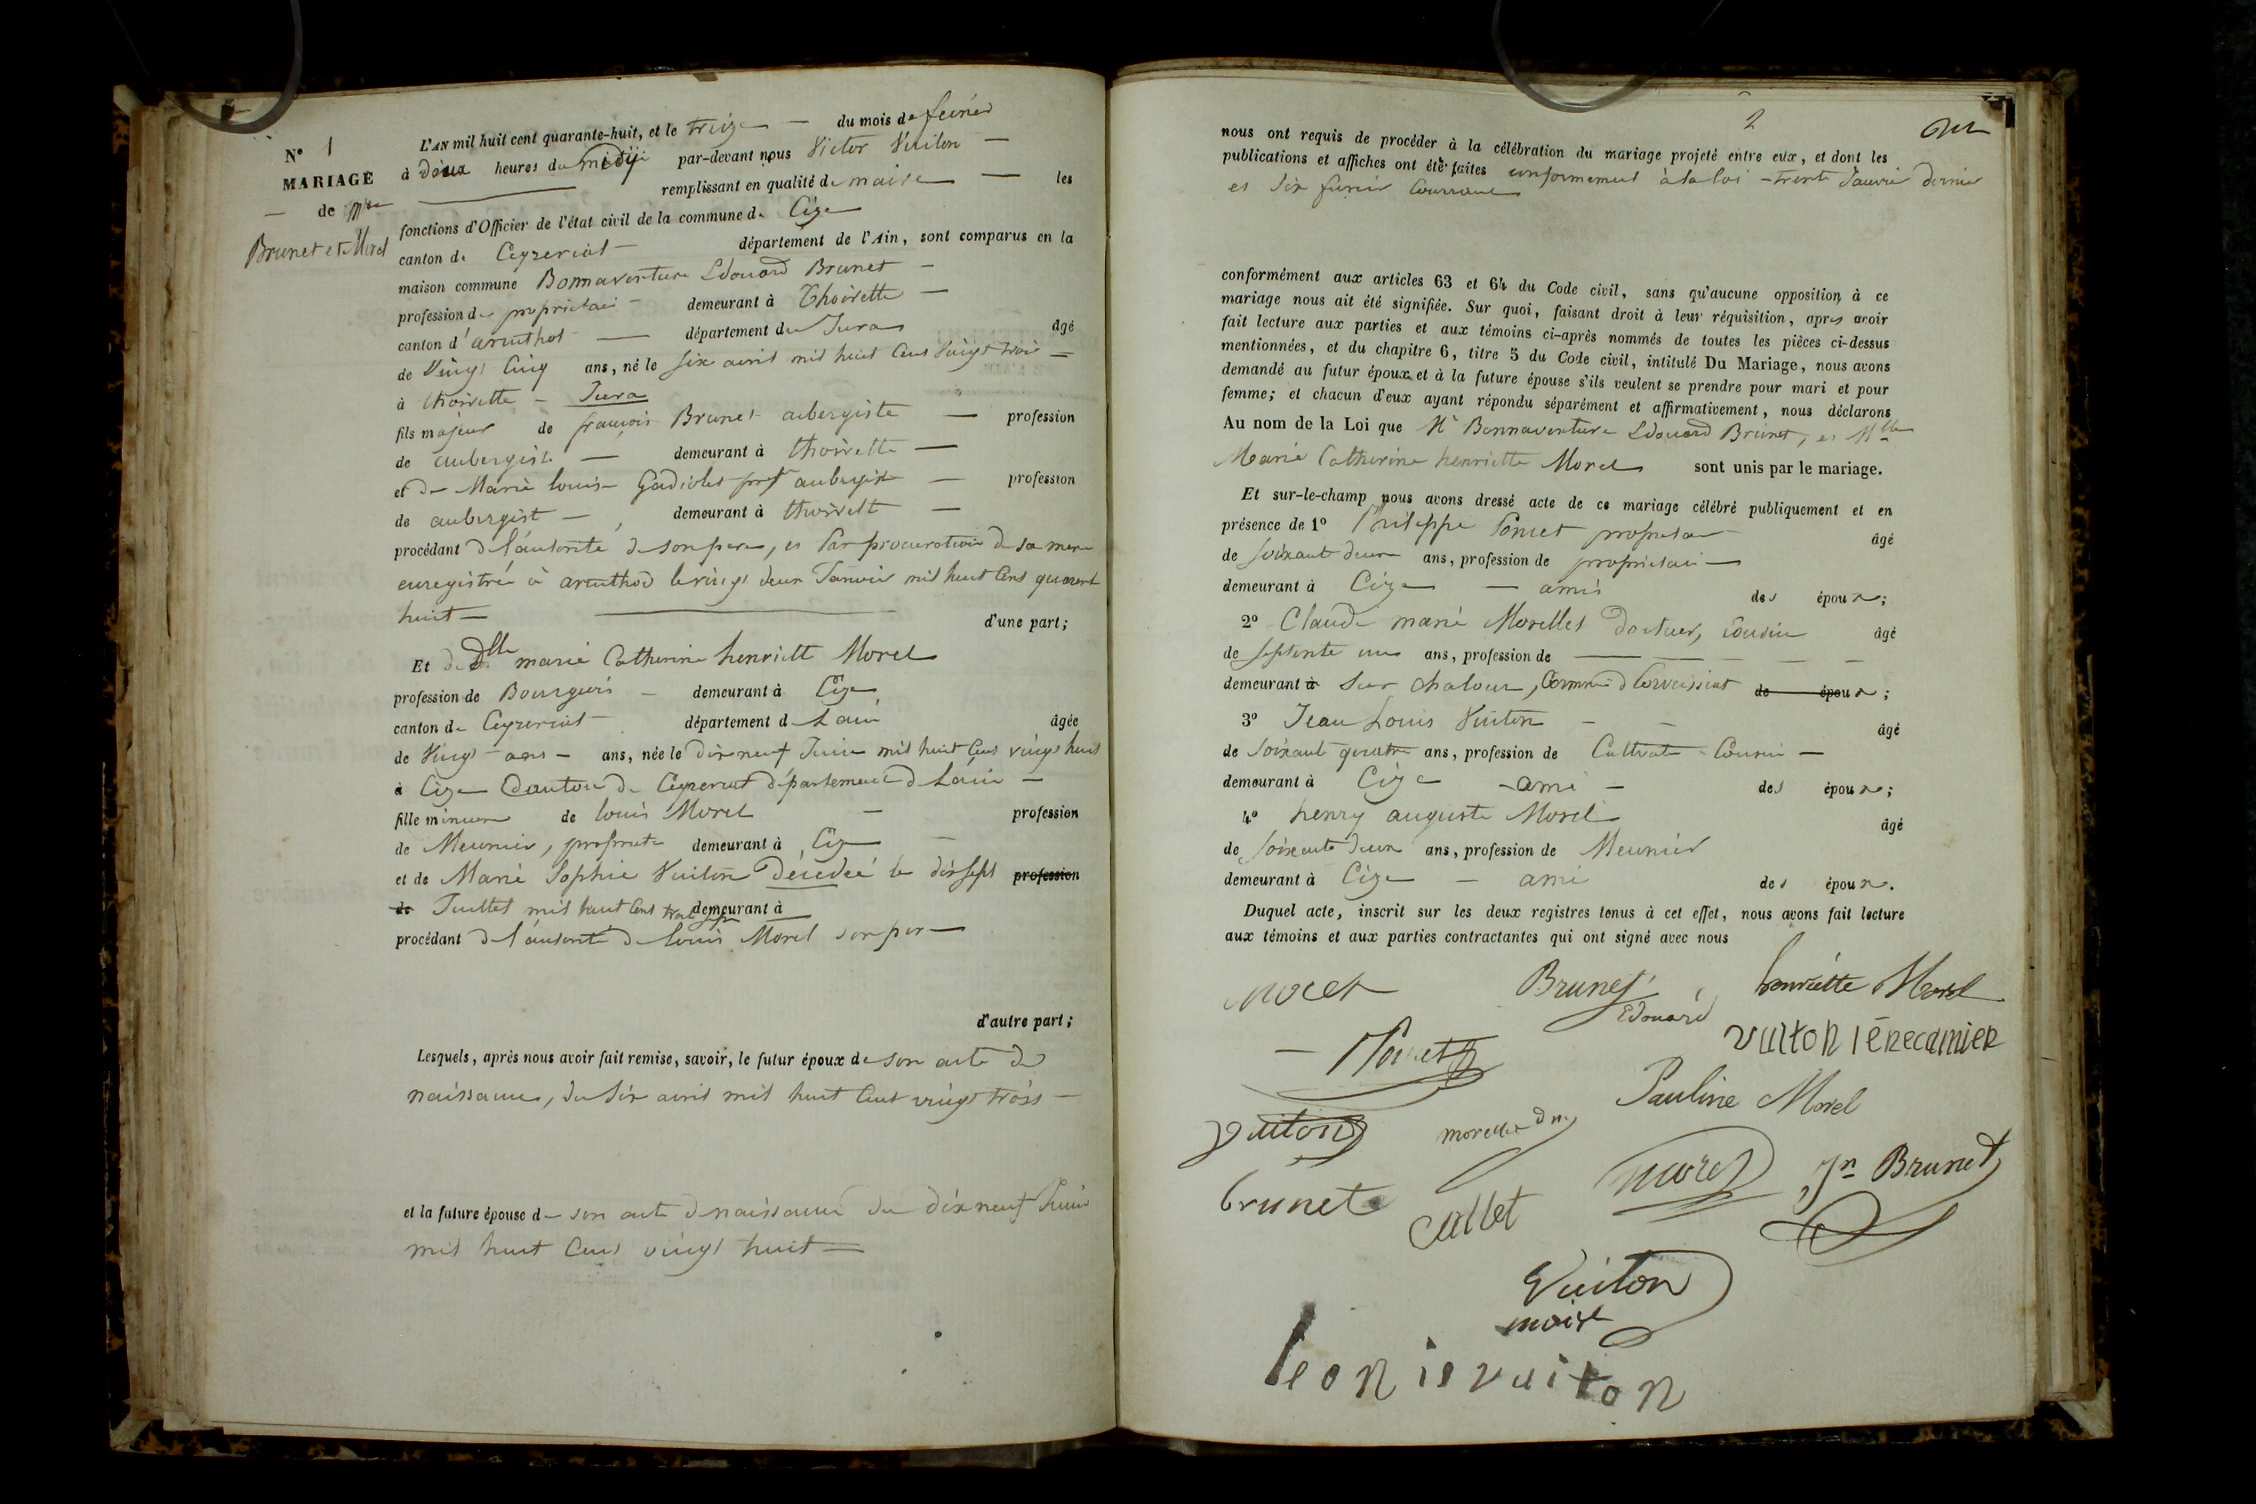 N° 1
MARIAGE
de Mre
Brunet et Morel
L'AN mil huit cent quarante-huit, et le treize du mois de fevrier
à deux heures du midi par-devant nous Victor Vuiton
remplissant en qualité de maire les
fonctions d'Officier de l'état civil de la commune de Cize
canton de Ceyzeriat département de l'Ain, sont comparus en la
maison commune Bonnaventure Edouard Brunet
profession de proprietai demeurant à Thoirette
canton d'arinthod département du Jura âgé
de Vingt Cinq ans, né le six avril mil huit Cent Vingt trois
à thoirette - Jura
fils majeur de francois Brunet aubergiste profession
de aubergiste demeurant à thoirette
et de Marie louise Gadiolet prof aubergist profession
de aubergist demeurant à thoirett
procédant de l'autorité de son pere, et Par procuration de sa mere
enregistrée à arinthod le vingt deux Janvier mil huit Cent quarant
huit d'une part;
Et de Dlle marie Catherine henriett Morel
profession de Bourgeois demeurant à Cize
canton de Ceyzeriat département de Lain âgée
de Vingt ans ans, née le dix neuf Juin mil huit Cent vingt huit
à Cize Canton de Ceyzeriat département de Lain
fille mineure de louis Morel profession
de Meunier, propriete demeurant à Cize
et de Marie Sophie Vuiton Décedeé le dix sept profession
de Juillet mil huit Cent trent sept demeurant à
procédant de l'autorité de Louis Morel son pere
d'autre part;
Lesquels, après nous avoir fait remise, savoir, le futur époux de son acte de
naissance, du six avril mil huit Cent vingt trois
et la future épouse de son acte de naissance du dix neuf Juin
mil huit Cent vingt huit
2
nous ont requis de procéder à la célébration du mariage projeté entre eux, et dont les
publications et affiches ont été faites conformement à la loi - trente Janvier dernier
et six fevrier Courrant
conformément aux articles 63 et 64 du Code civil, sans qu'aucune opposition à ce
mariage nous ait été signifiée. Sur quoi, faisant droit à leur réquisition, apres avoir
fait lecture aux parties et aux témoins ci-après nommés de toutes les pièces ci-dessus
mentionnées, et du chapitre 6, titre 5 du Code civil, intitulé Du Mariage, nous avons
demandé au futur époux et à la future épouse s'ils veulent se prendre pour mari et pour
femme; et chacun d'eux ayant répondu séparément et affirmativement, nous déclarons
Au nom de la Loi que Mr Bonnaventure Edouard Brunet, et Mlle
Marie Catherine henriette Morel sont unis par le mariage.
Et sur-le-champ nous avons dressé acte de ce mariage célébré publiquement et en
présence de 1° Philippe Poncet proprietai âgé
de soixante deux ans, profession de proprietai
demeurant à Cize - amis des époux;
2° Claude marie Morellet docteur, cousin âgé
de septente un ans, profession de
demeurant à Sur chalour, Commune de Corveissiat de époux;
3° Jean Louis Vuiton âgé
de soixant quatre ans, profession de Cultivate - Cousin
demeurant à Cize - ami des époux;
4° henry auguste Morel âgé
de soixante deux ans, profession de Meunier
demeurant à Cize - ami des époux.
Duquel acte, inscrit sur les deux registres tenus à cet effet, nous avons fait lecture
aux témoins et aux parties contractantes qui ont signé avec nous
morel Brunet Edouard henriette Morel
Poncet vuiton
Pauline Morel
vuiton morellet
brunet Callet morel Jn Brunet
Vuiton
maire
leonis vuiton